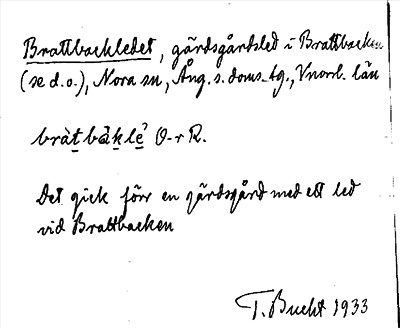 Brattbackledet, gärdsgårdsled i Brattbacken
(se d.o.), Nora sn, Ång. s. doms.tg., Vnorrl. län
bràt̲bàk̲le̲ˀ O-r R.
Det gick förr en gärdsgård med ett led
vid Brattbacken
T. Bucht 1933